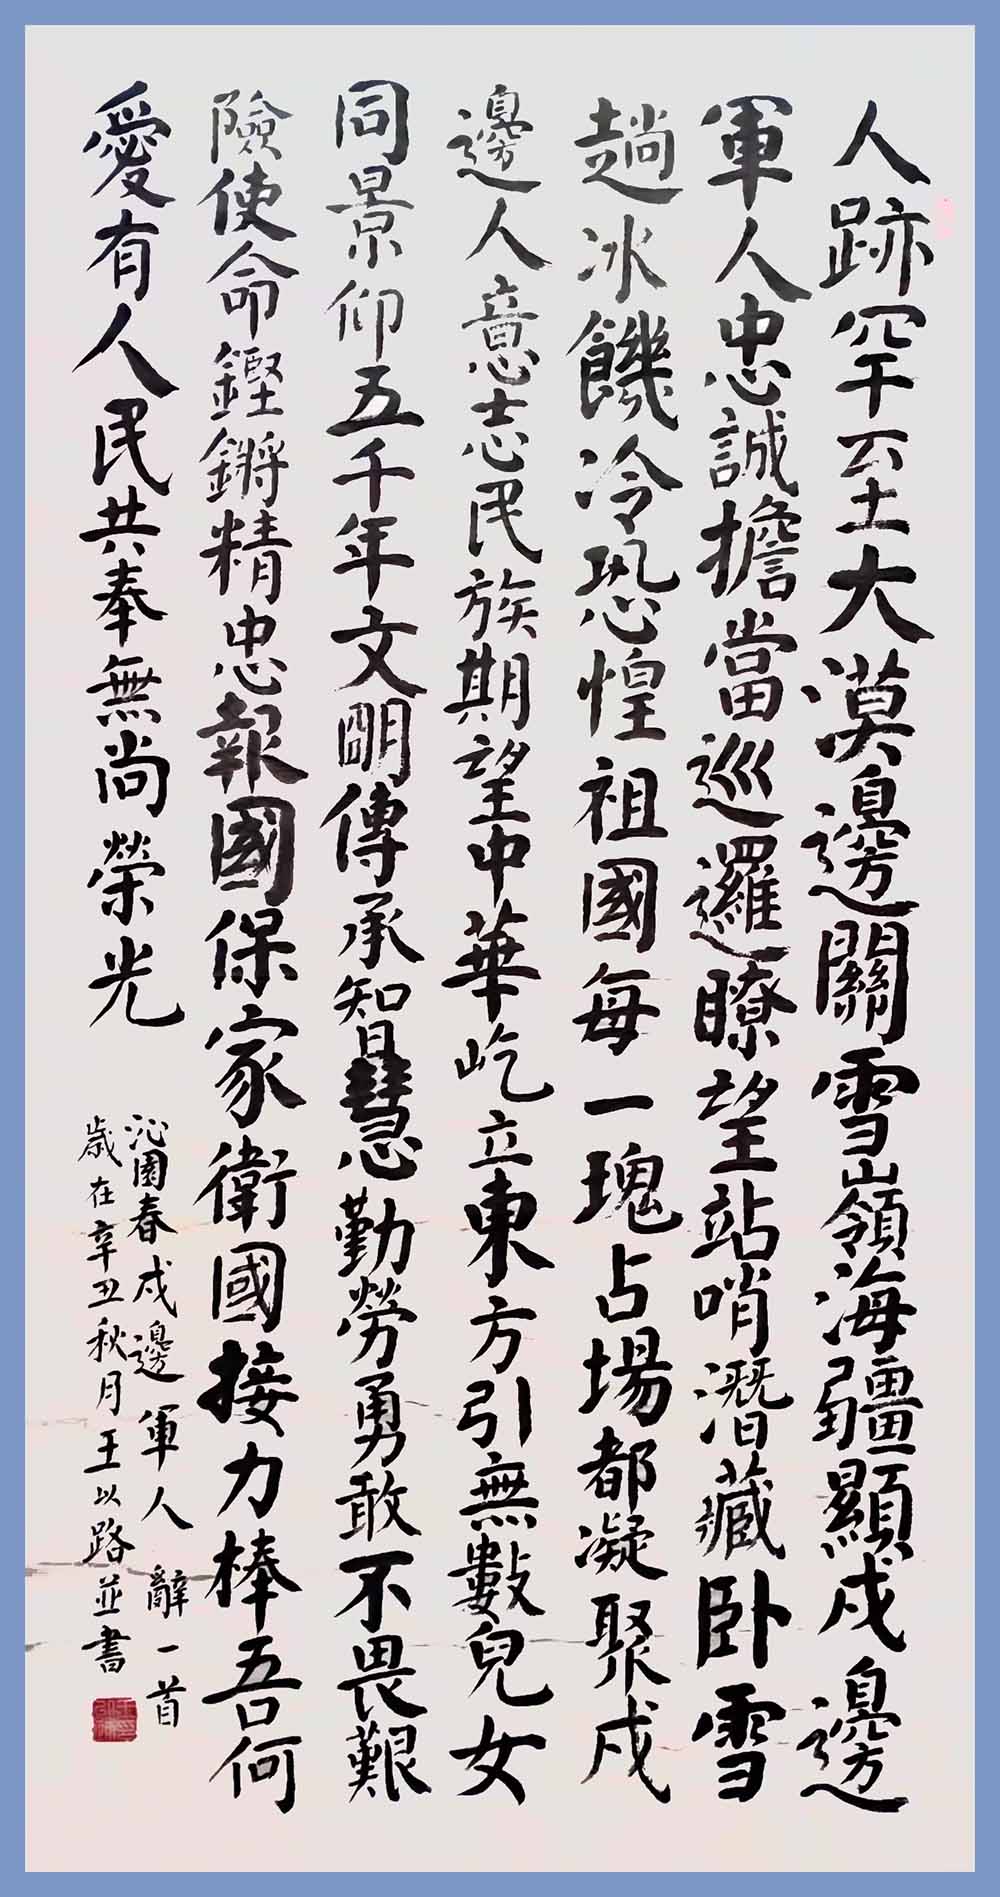 人跡罕至大漠邊關雪嶺海疆顯戍邊
軍人忠誠擔當巡邏瞭望站哨潛藏臥雪
趟冰饑冷恐惶祖國每一塊占場都凝聚戍
邊人意志民族期望中華屹立東方引無數兒女
同景仰五千年文明傳承知慧勤勞勇敢不畏艱
險使命鏗鏘精忠報國保家衛國接力棒吾何
愛有人民共奉無尚榮光
沁園春戍邊軍人辭一首
歲在辛丑秋月王以路並書